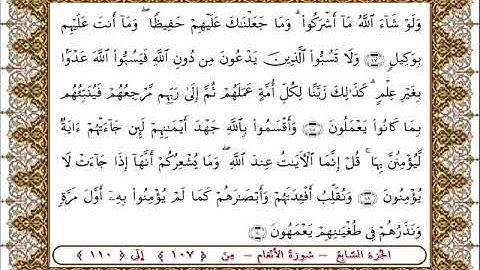 وَلَوْ شَآءَ ٱللَّهُ مَآ أَشْرَكُوا۟ ۗ وَمَا جَعَلْنَـٰكَ عَلَيْهِمْ حَفِيظًا ۖ وَمَآ أَنتَ عَلَيْهِم
بِوَكِيلٍ ﴿١٠٧﴾ وَلَا تَسُبُّوا۟ ٱلَّذِينَ يَدْعُونَ مِن دُونِ ٱللَّهِ فَيَسُبُّوا۟ ٱللَّهَ عَدْوًۢا
بِغَيْرِ عِلْمٍ ۗ كَذَٰلِكَ زَيَّنَّا لِكُلِّ أُمَّةٍ عَمَلَهُمْ ثُمَّ إِلَىٰ رَبِّهِم مَّرْجِعُهُمْ فَيُنَبِّئُهُم
بِمَا كَانُوا۟ يَعْمَلُونَ ﴿١٠٨﴾ وَأَقْسَمُوا۟ بِٱللَّهِ جَهْدَ أَيْمَـٰنِهِمْ لَئِن جَآءَتْهُمْ ءَايَةٌ
لَّيُؤْمِنُنَّ بِهَا ۚ قُلْ إِنَّمَا ٱلْـَٔايَـٰتُ عِندَ ٱللَّهِ ۖ وَمَا يُشْعِرُكُمْ أَنَّهَآ إِذَا جَآءَتْ لَا
يُؤْمِنُونَ ﴿١٠٩﴾ وَنُقَلِّبُ أَفْـِٔدَتَهُمْ وَأَبْصَـٰرَهُمْ كَمَا لَمْ يُؤْمِنُوا۟ بِهِۦٓ أَوَّلَ مَرَّةٍ
وَنَذَرُهُمْ فِى طُغْيَـٰنِهِمْ يَعْمَهُونَ ﴿١١٠﴾
الجزء السابع - سورة الأنعام - من ﴿ ١٠٧ ﴾ إلى ﴿ ١١٠ ﴾